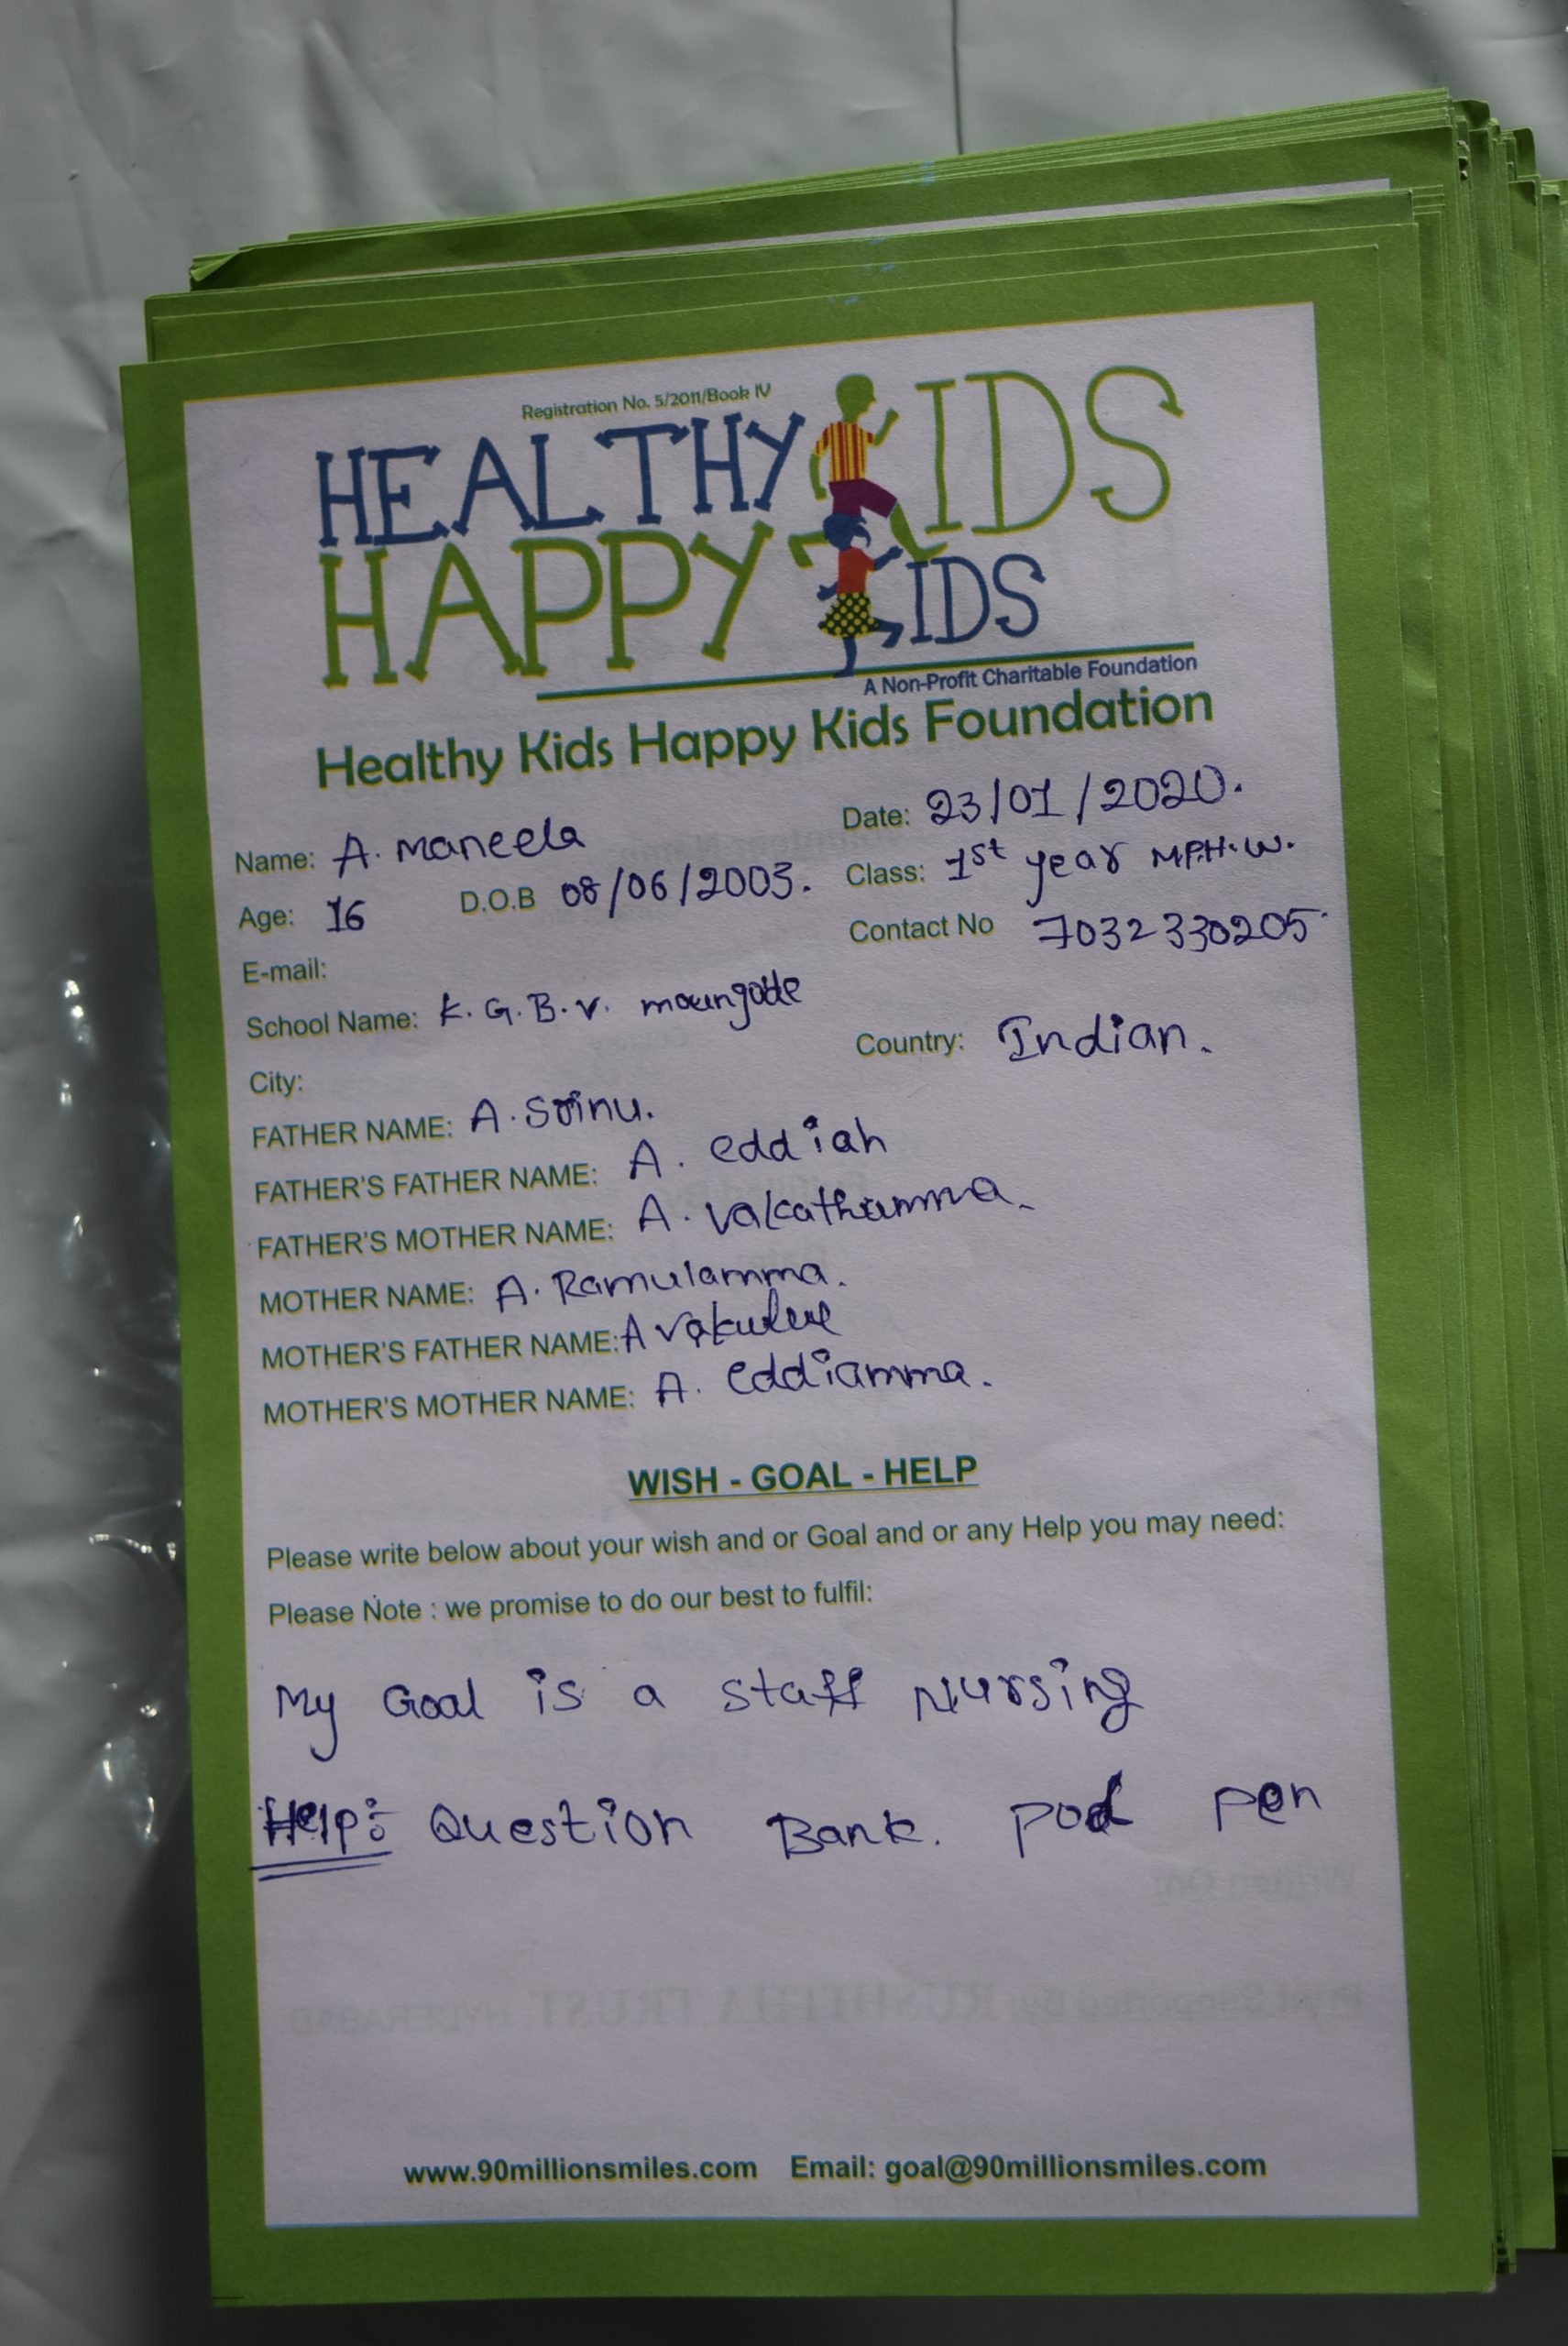 Registration No. 5/2011/Book IV
HEALTHY KIDS
HAPPY KIDS
A Non-Profit Charitable Foundation
Healthy Kids Happy Kids Foundation
Name: A. Maneela Date: 23/01/2020.
Age: 16 D.O.B 08/06/2003. Class: 1st year M.P.H.W.
E-mail: Contact No 7032330205
School Name: K.G.B.V.
City: Country: Indian.
FATHER NAME: A. Srinu.
FATHER'S FATHER NAME: A. eddiah
FATHER'S MOTHER NAME: A.
MOTHER NAME: A. Ramulamma.
MOTHER'S FATHER NAME: A
MOTHER'S MOTHER NAME: A. eddiamma.
WISH - GOAL - HELP
Please write below about your wish and or Goal and or any Help you may need:
Please Note : we promise to do our best to fulfil:
My Goal is a staff Nursing
Help: Question Bank. pad pen
www.90millionsmiles.com Email: goal@90millionsmiles.com